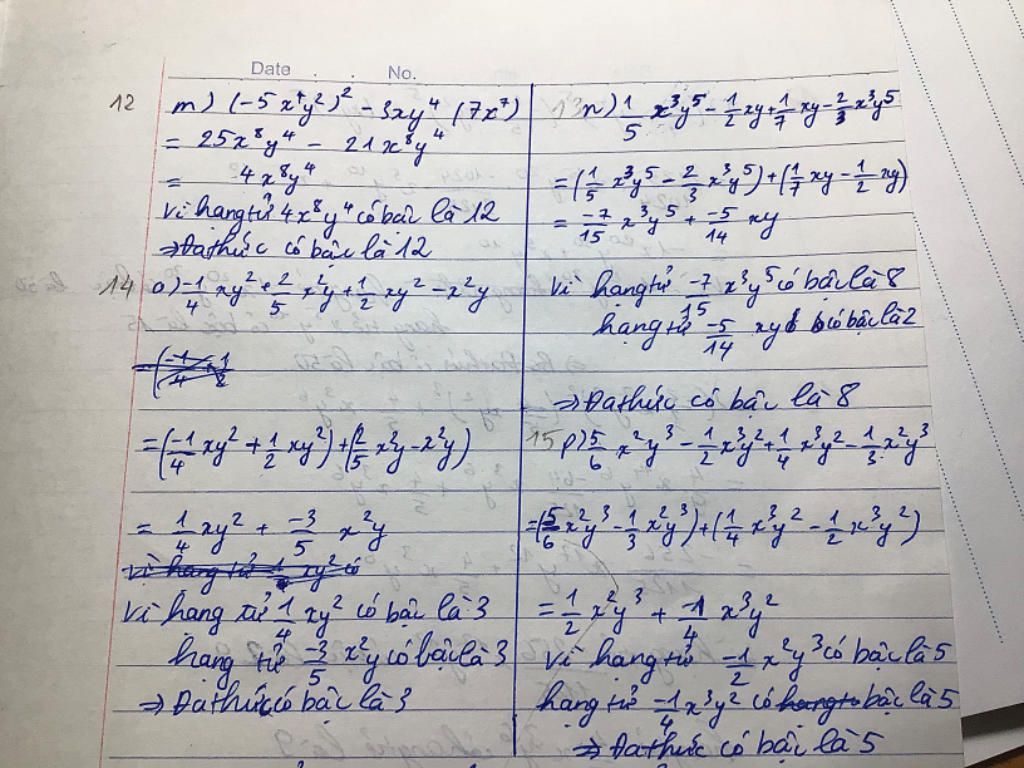 Date . . No.
12 m) (-5x⁴y²)² - 3xy⁴ (7x⁷)
= 25x⁸y⁴ - 21x⁸y⁴
= 4x⁸y⁴
Vì hạng tử 4x⁸y⁴ có bậc là 12
⇒ Đa thức có bậc là 12
14 o) -1/4 xy² + 2/5 x²y + 1/2 xy² - x²y
= (-1/4 xy² + 1/2 xy²) + (2/5 x²y - x²y)
= 1/4 xy² + -3/5 x²y
Vì hạng tử 1/4 xy² có bậc là 3
hạng tử -3/5 x²y có bậc là 3
⇒ Đa thức có bậc là 3
13 n) 1/5 x³y⁵ - 1/2 xy + 1/7 xy - 2/3 x³y⁵
= (1/5 x³y⁵ - 2/3 x³y⁵) + (1/7 xy - 1/2 xy)
= -7/15 x³y⁵ + -5/14 xy
Vì hạng tử -7/15 x³y⁵ có bậc là 8
hạng tử -5/14 xy có bậc là 2
⇒ Đa thức có bậc là 8
15 p) 5/6 x²y³ - 1/2 x³y² + 1/4 x³y² - 1/3 x²y³
= (5/6 x²y³ - 1/3 x²y³) + (1/4 x³y² - 1/2 x³y²)
= 1/2 x²y³ + -1/4 x³y²
Vì hạng tử -1/2 x²y³ có bậc là 5
hạng tử -1/4 x³y² có bậc là 5
⇒ Đa thức có bậc là 5